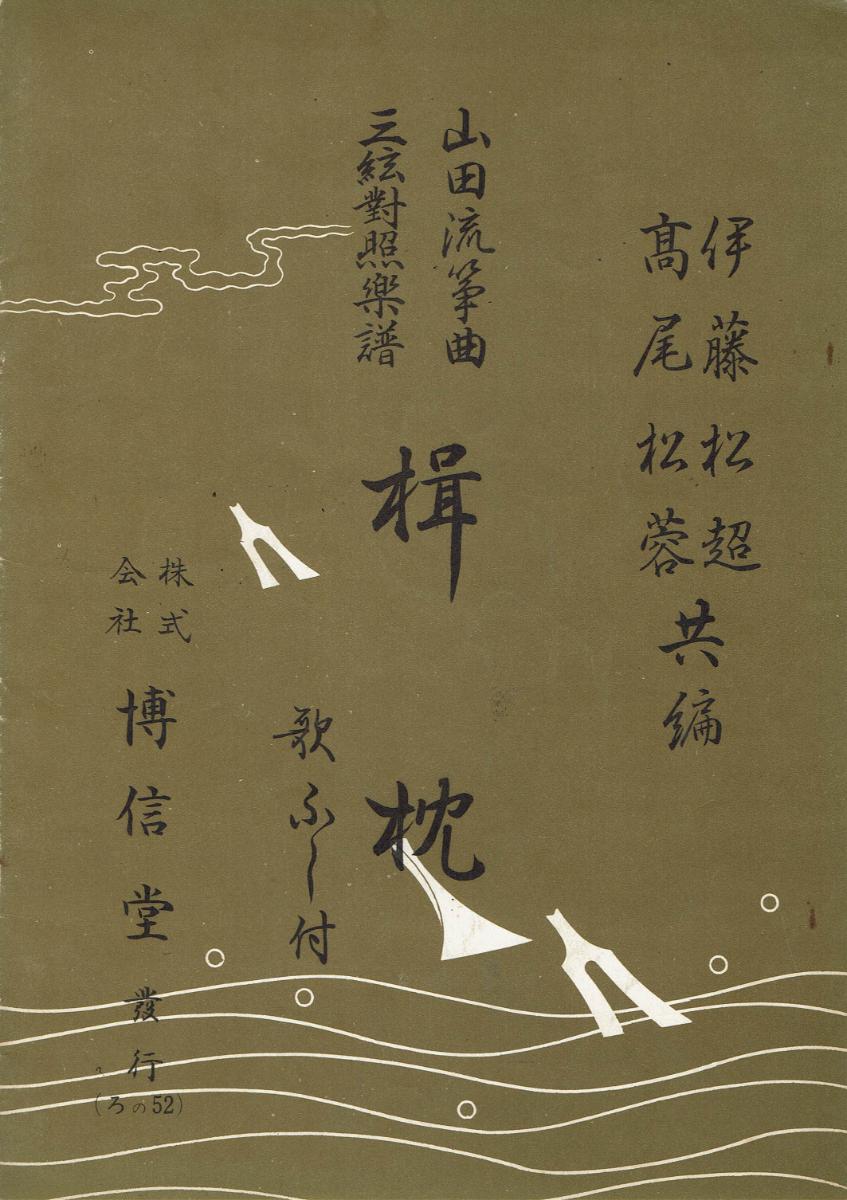 伊藤松超
髙尾松蓉
共編
山田流箏曲
三絃對照樂譜
楫枕
歌ふし付
株式
会社
博信堂發行
(ろの52)